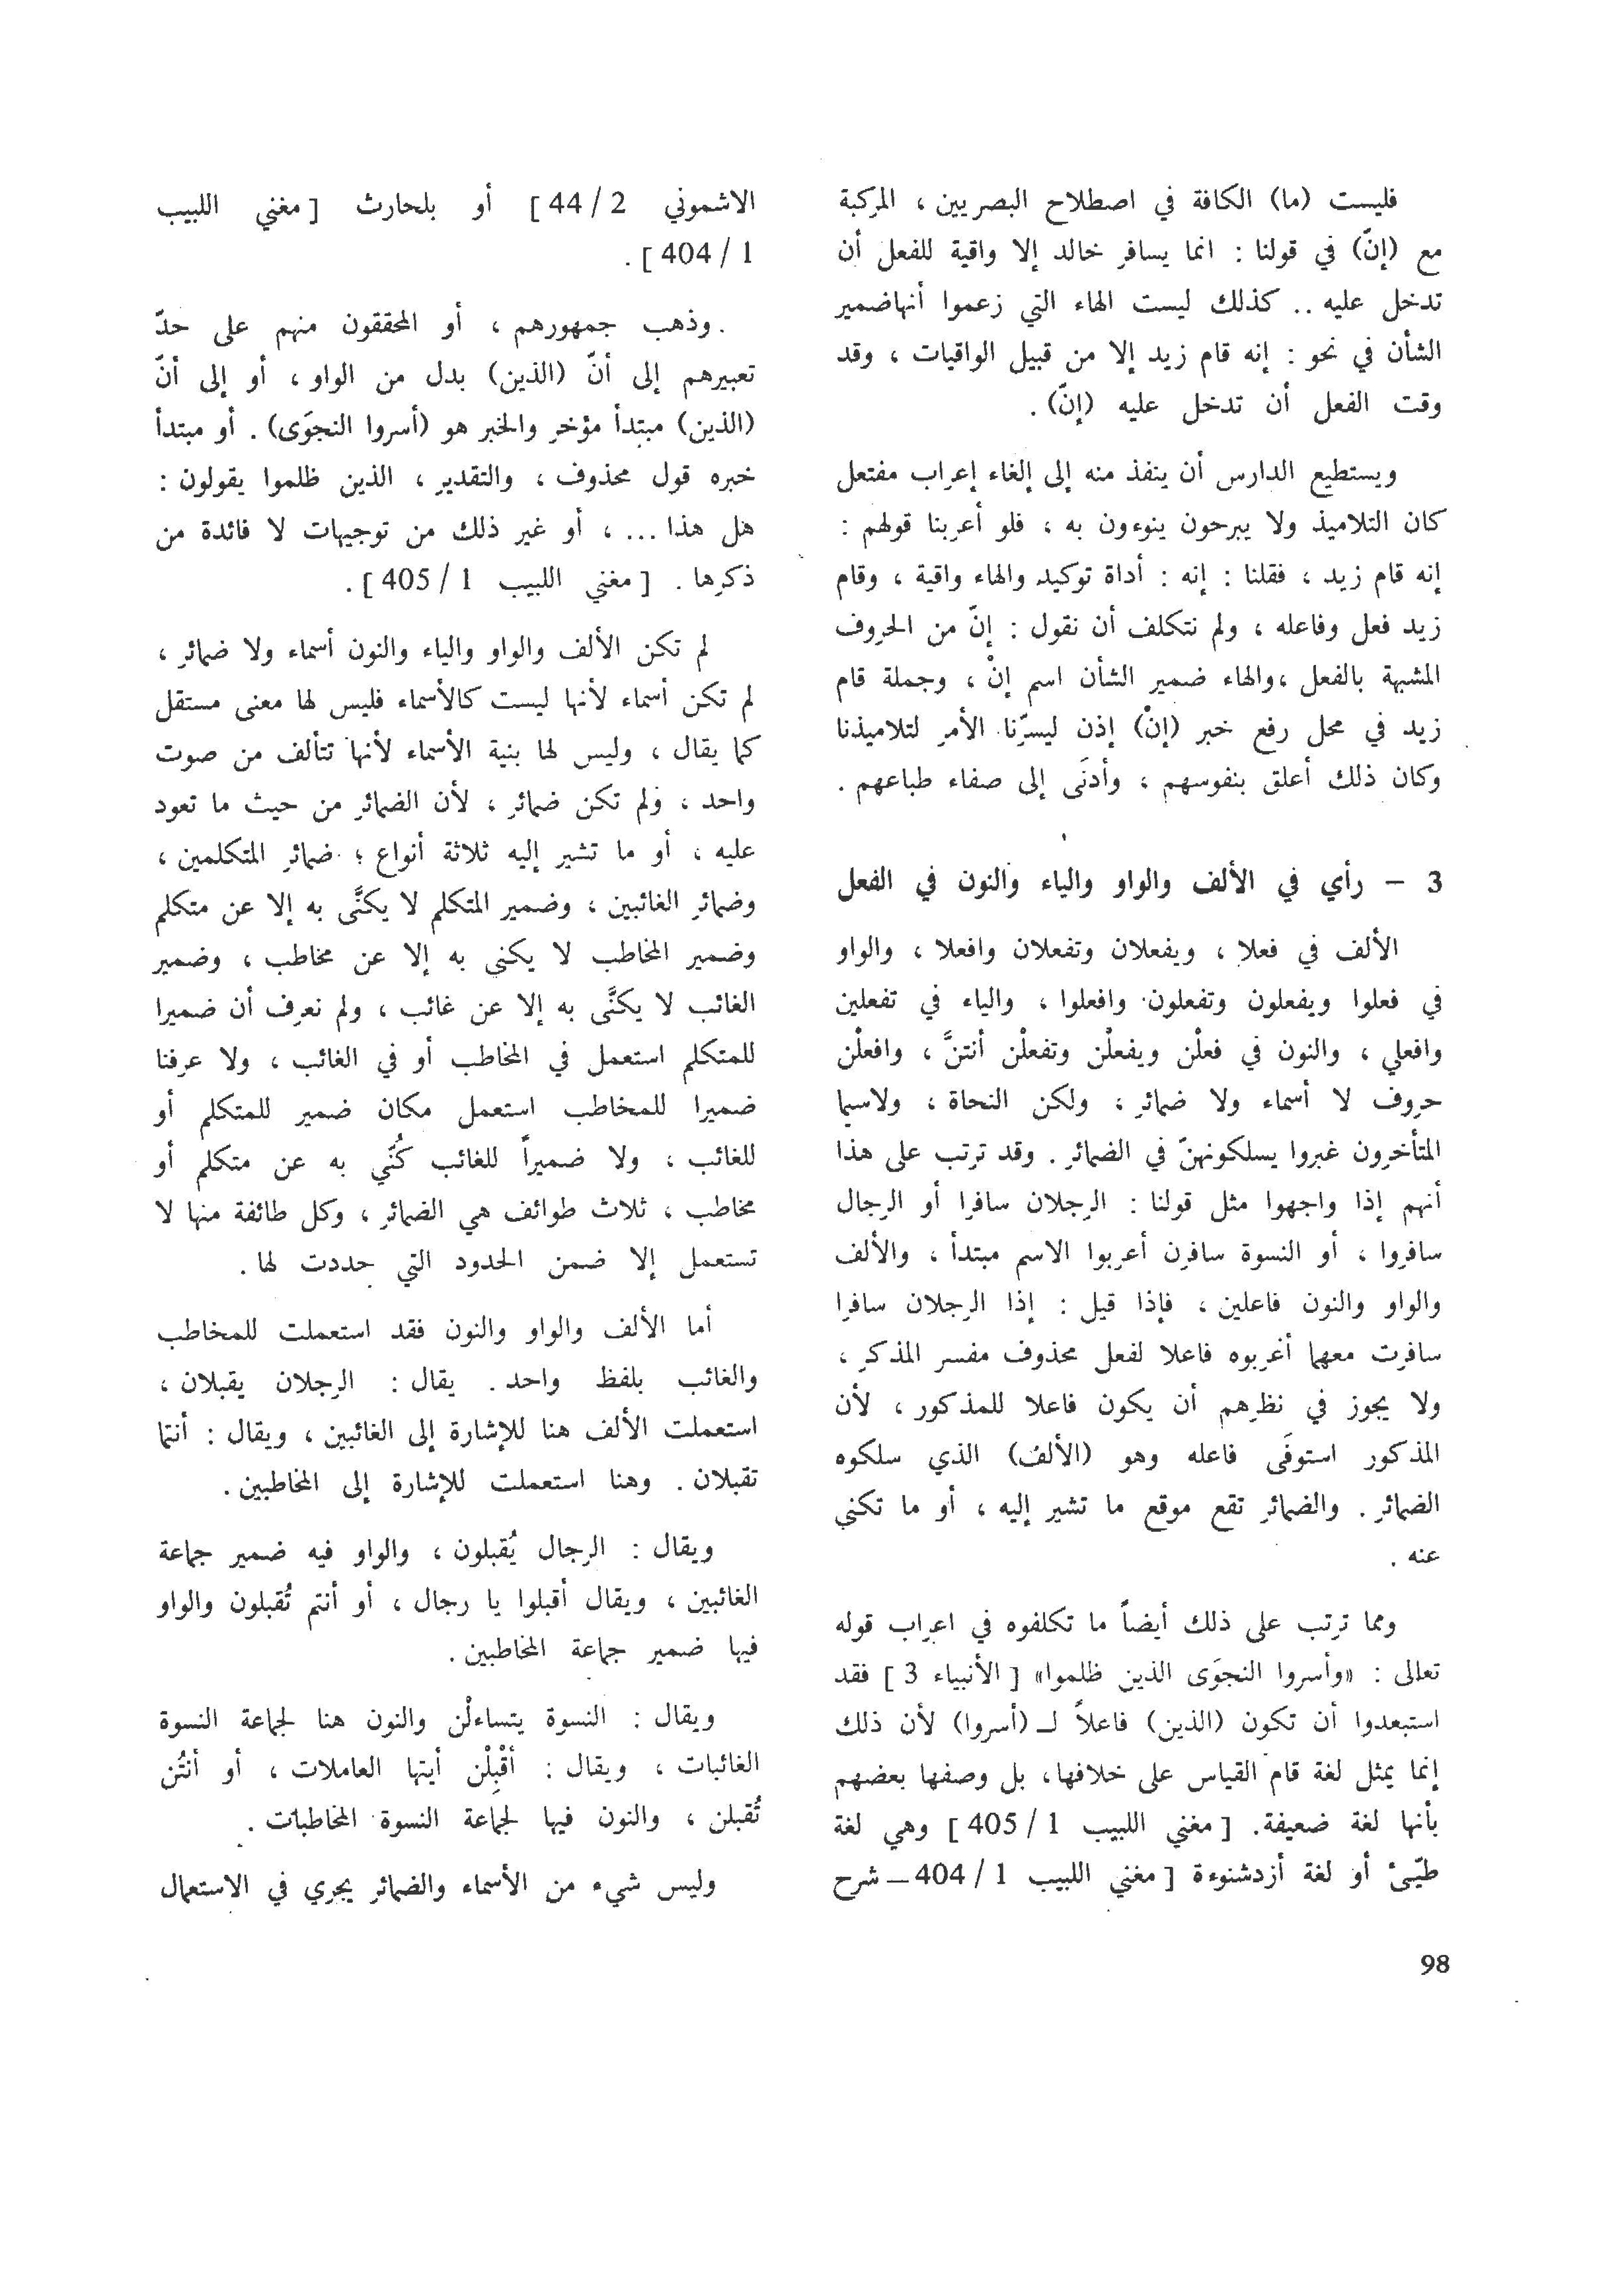 فليست (ما) الكافة في اصطلاح البصريين ، المركبة
مع (إنّ) في قولنا : انما يسافر خالد إلا واقية للفعل أن
تدخل عليه .. كذلك ليست الهاء التي زعموا أنهاضمير
الشأن في نحو : إنه قام زيد إلا من قبيل الواقيات ، وقد
وقت الفعل أن تدخل عليه (إنّ) .
ويستطيع الدارس أن ينفذ منه إلى إلغاء إعراب مفتعل
كان التلاميذ ولا يبرحون ينوءون به ، فلو أعربنا قولهم :
إنه قام زيد ، فقلنا : إنه : أداة توكيد والهاء واقية ، وقام
زيد فعل وفاعله ، ولم نتكلف أن نقول : إنّ من الحروف
المشبهة بالفعل ،والهاء ضمير الشأن اسم إنْ ، وجملة قام
زيد في محل رفع خبر (إنْ) إذن ليسرّنا الأمر لتلاميذنا
وكان ذلك أعلق بنفوسهم ، وأدنَى إلى صفاء طباعهم .
3 – رأي في الألف والواو والياء والنون في الفعل
الألف في فعلا ، ويفعلان وتفعلان وافعلا ، والواو
في فعلوا ويفعلون وتفعلون وافعلوا ، والياء في تفعلين
وافعلي ، والنون في فعلْن ويفعلْن وتفعلْن أنتنَّ ، وافعلْن
حروف لا أسماء ولا ضمائر ، ولكن النحاة ، ولاسيما
المتأخرون غبروا يسلكونهنّ في الضمائر . وقد ترتب على هذا
أنهم إذا واجهوا مثل قولنا : الرجلان سافرا أو الرجال
سافروا ، أو النسوة سافرن أعربوا الاسم مبتدأ ، والألف
والواو والنون فاعلين ، فإذا قيل : إذا الرجلان سافرا
سافرت معهما أعربوه فاعلا لفعل محذوف مفسر المذكر ،
ولا يجوز في نظرهم أن يكون فاعلا للمذكور ، لأن
المذكور استوفَى فاعله وهو (الألف) الذي سلكوه
الضمائر . والضمائر تقع موقع ما تشير إليه ، أو ما تكني
عنه .
ومما ترتب على ذلك أيضاً ما تكلفوه في اعراب قوله
تعالى : «وأسروا النجوَى الذين ظلموا» [ الأنبياء 3 ] فقد
استبعدوا أن تكون (الذين) فاعلاً لـ (أسروا) لأن ذلك
إنما يمثل لغة قام القياس على خلافها، بل وصفها بعضهم
بأنها لغة ضعيفة. [ مغني اللبيب 1 / 405 ] وهي لغة
طيّئ أو لغة أزدشنوءة [ مغني اللبيب 1 / 404 – شرح
الاشموني 2 / 44 ] أو بلحارث [ مغني اللبيب
1 / 404 ] .
وذهب جمهورهم ، أو المحققون منهم على حدّ
تعبيرهم إلى أنّ (الذين) بدل من الواو ، أو إلى أنّ
(الذين) مبتدأ مؤخر والخبر هو (أسروا النجوَى) . أو مبتدأ
خبره قول محذوف ، والتقدير ، الذين ظلموا يقولون :
هل هذا ... ، أو غير ذلك من توجيهات لا فائدة من
ذكرها . [ مغني اللبيب 1 / 405 ] .
لم تكن الألف والواو والياء والنون أسماء ولا ضمائر ،
لم تكن أسماء لأنها ليست كالأسماء فليس لها معنى مستقل
كما يقال ، وليس لها بنية الأسماء لأنها تتألف من صوت
واحد ، ولم تكن ضمائر ، لأن الضمائر من حيث ما تعود
عليه ، أو ما تشير إليه ثلاثة أنواع ؛ ضمائر المتكلمين ،
وضمائر الغائبين ، وضمير المتكلم لا يكنَّى به إلا عن متكلم
وضمير المخاطب لا يكنى به إلا عن مخاطب ، وضمير
الغائب لا يكنَّى به إلا عن غائب ، ولم نعرف أن ضميرا
للمتكلم استعمل في المخاطب أو في الغائب ، ولا عرفنا
ضميرا للمخاطب استعمل مكان ضمير للمتكلم أو
للغائب ، ولا ضميراً للغائب كُنّي به عن متكلم أو
مخاطب ، ثلاث طوائف هي الضمائر ، وكل طائفة منها لا
تستعمل إلا ضمن الحدود التي حددت لها .
أما الألف والواو والنون فقد استعملت للمخاطب
والغائب بلفظ واحد . يقال : الرجلان يقبلان ،
استعملت الألف هنا للإشارة إلى الغائبين ، ويقال : أنتما
تقبلان . وهنا استعملت للإشارة إلى المخاطبين .
ويقال : الرجال يُقبلون ، والواو فيه ضمير جماعة
الغائبين ، ويقال أقبلوا يا رجال ، أو أنتم تُقبلون والواو
فيها ضمير جماعة المخاطبين .
ويقال : النسوة يتساءلْن والنون هنا لجماعة النسوة
الغائبات ، ويقال : أقْبِلْن أيتها العاملات ، أو أنتُن
تُقبلن ، والنون فيها لجماعة النسوة المخاطبات .
وليس شيء من الأسماء والضمائر يجري في الاستعمال
98